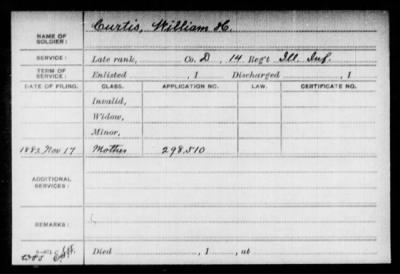 NAME OF SOLDIER: Curtis, William H.
SERVICE: Late rank, Co. D, 14 Reg't Ill. Inf.
TERM OF SERVICE: Enlisted , 1 Discharged , 1
DATE OF FILING. CLASS. APPLICATION NO. LAW. CERTIFICATE NO.
Invalid,
Widow,
Minor,
1882 Nov 17 Mother 298.510
ADDITIONAL SERVICES:
REMARKS:
Died , 1 , at